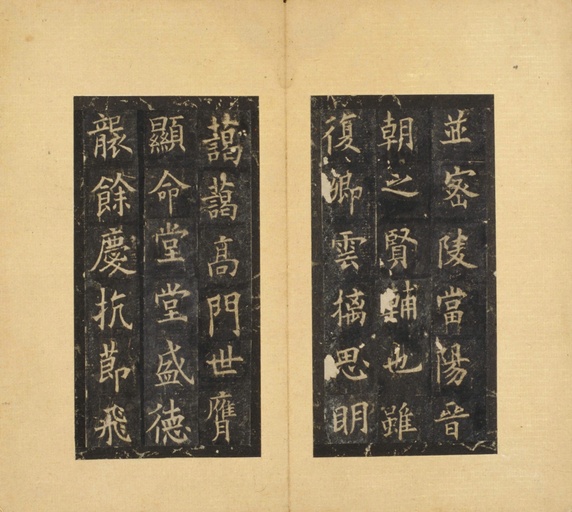 並宻陵當陽晉
朝之賢輔也雖
復卿雲摛思眀
藹藹髙門世膺
顯命堂堂盛德
襲餘慶抗莭飛